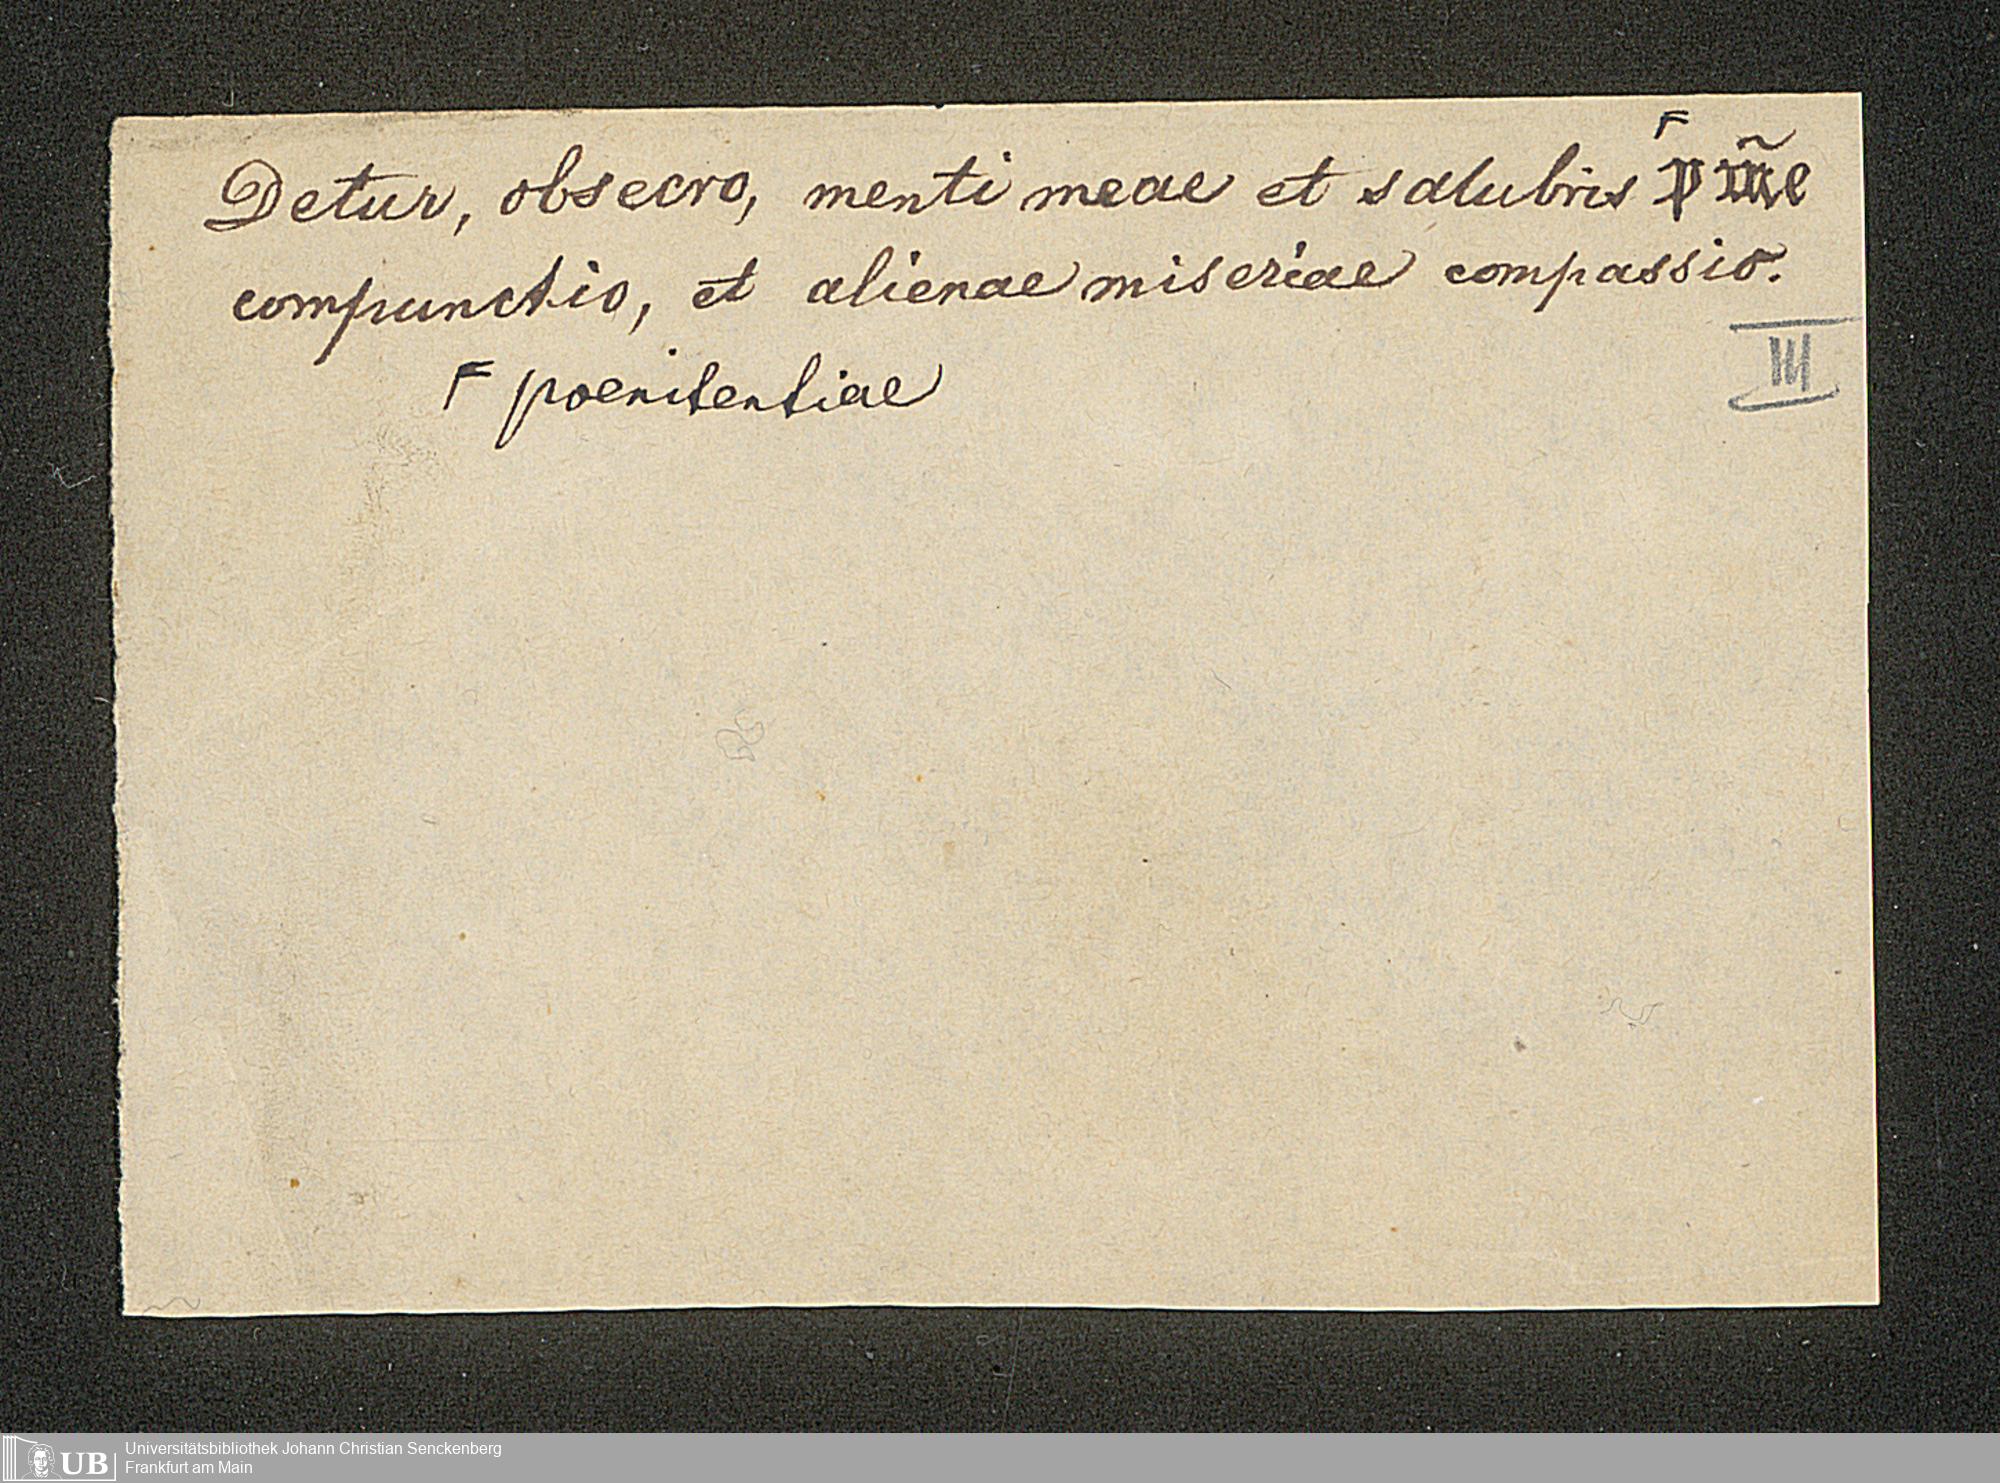 Detur, obsecro, menti meae et salubris
compunctio, et alienae miseriae compassio.
III
F poenitentiae
UB Universitätsbibliothek Johann Christian Senckenberg
Frankfurt am Main